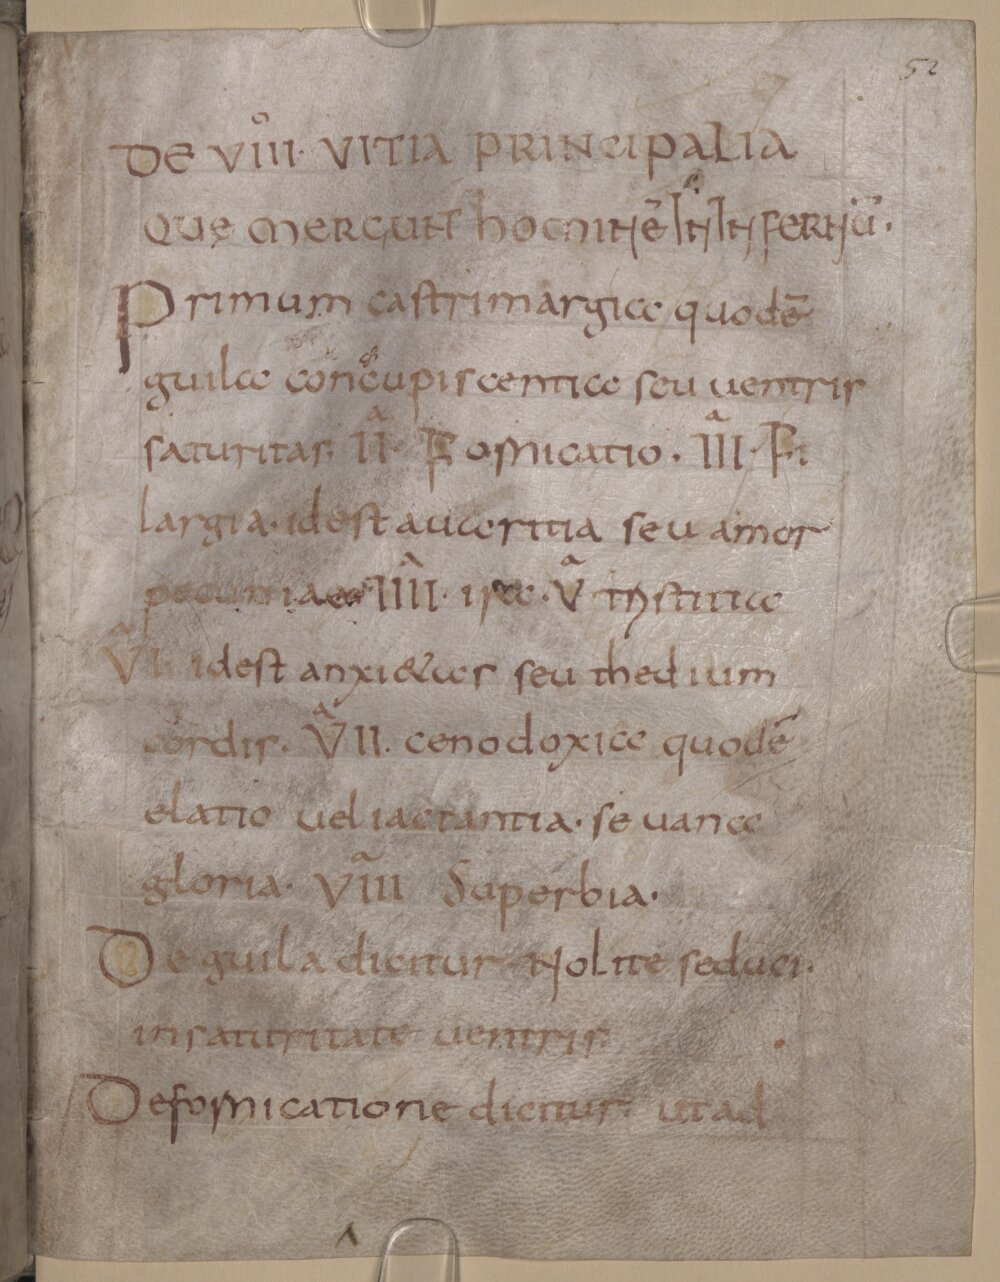 52
DE VIII. VITIA PRINCIPALIA
QUE MERGUNT hOMINE
Primum castrimargia quodē
guila concupiscentia seu uentris
saturitas. II. Fornicatio. III. Fi
largia. idest auaritia seu amor
pecuniae IIII. ira. V tristitia
VI. idest anxi&as seu thedium
cordis. VII. cenodoxia quodē
elatio uel iactantia. se uana
gloria. VIII Superbia.
De guila dicitur Nolite seduci.
in saturitate uentris.
De fornicatione dicitur ut ad